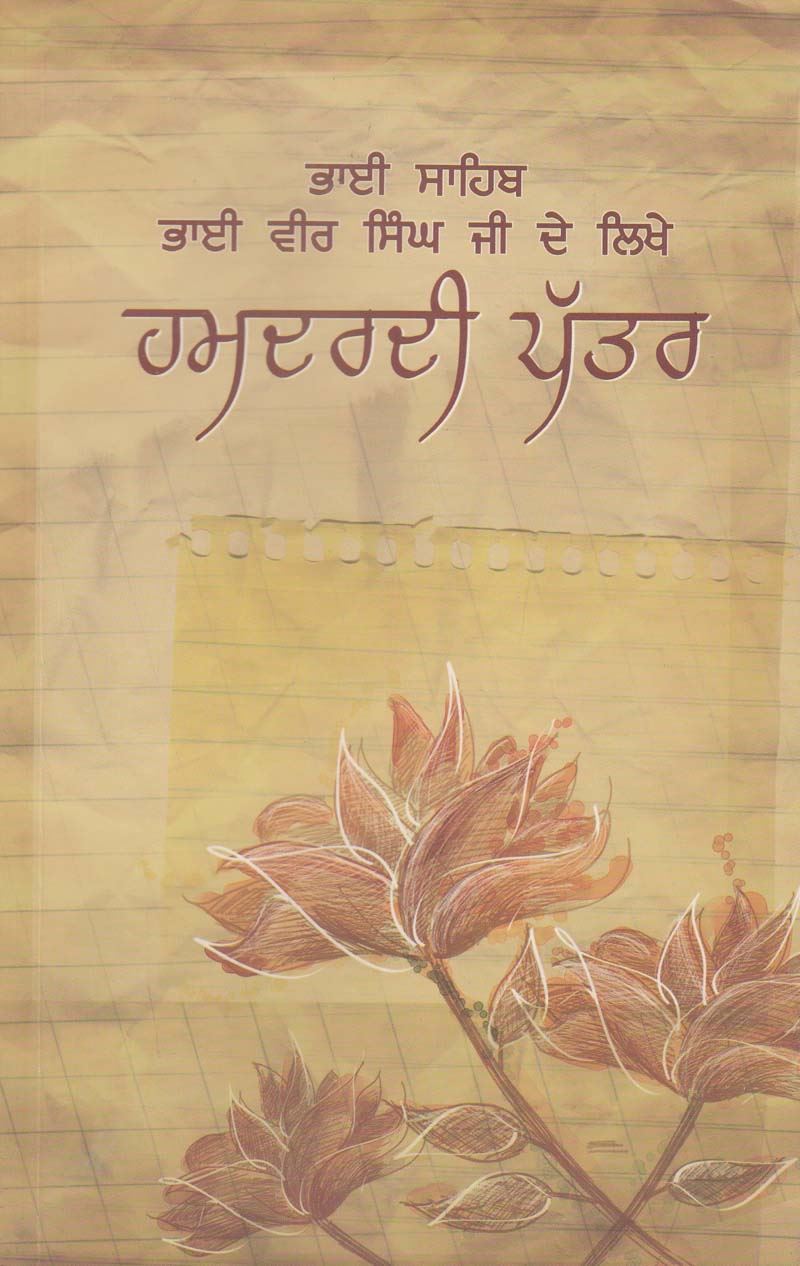 ਭਾਈ ਸਾਹਿਬ
ਭਾਈ ਵੀਰ ਸਿੰਘ ਜੀ ਦੇ ਲਿਖੇ
ਹਮਦਰਦੀ ਪੱਤਰ